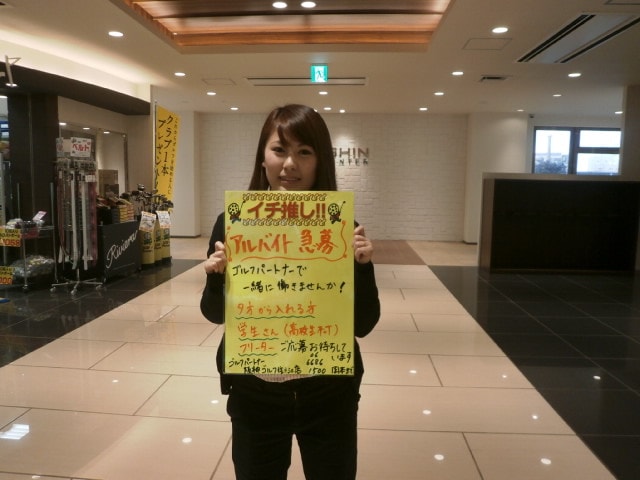 イチ推し!!
アルバイト 急募
ゴルフパートナーで
一緒に働きませんか!
夕方から入れる方
学生さん(高校生不可)
フリーター ご応募お待ちして
います
ゴルフパートナー
阪神ゴルフセンター店
06
6686
1500
クラブ一本
プレゼント
ベルト
Riviera
SHIN